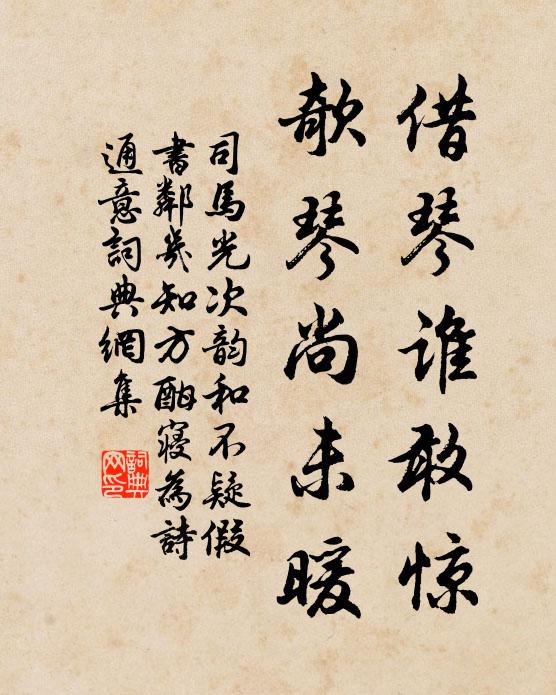 借琴谁敢惊
欹琴尚未暖
司馬光次韵和不疑假
書鄰幾知方酣寢為詩
通意詞典網集
詞典
网印